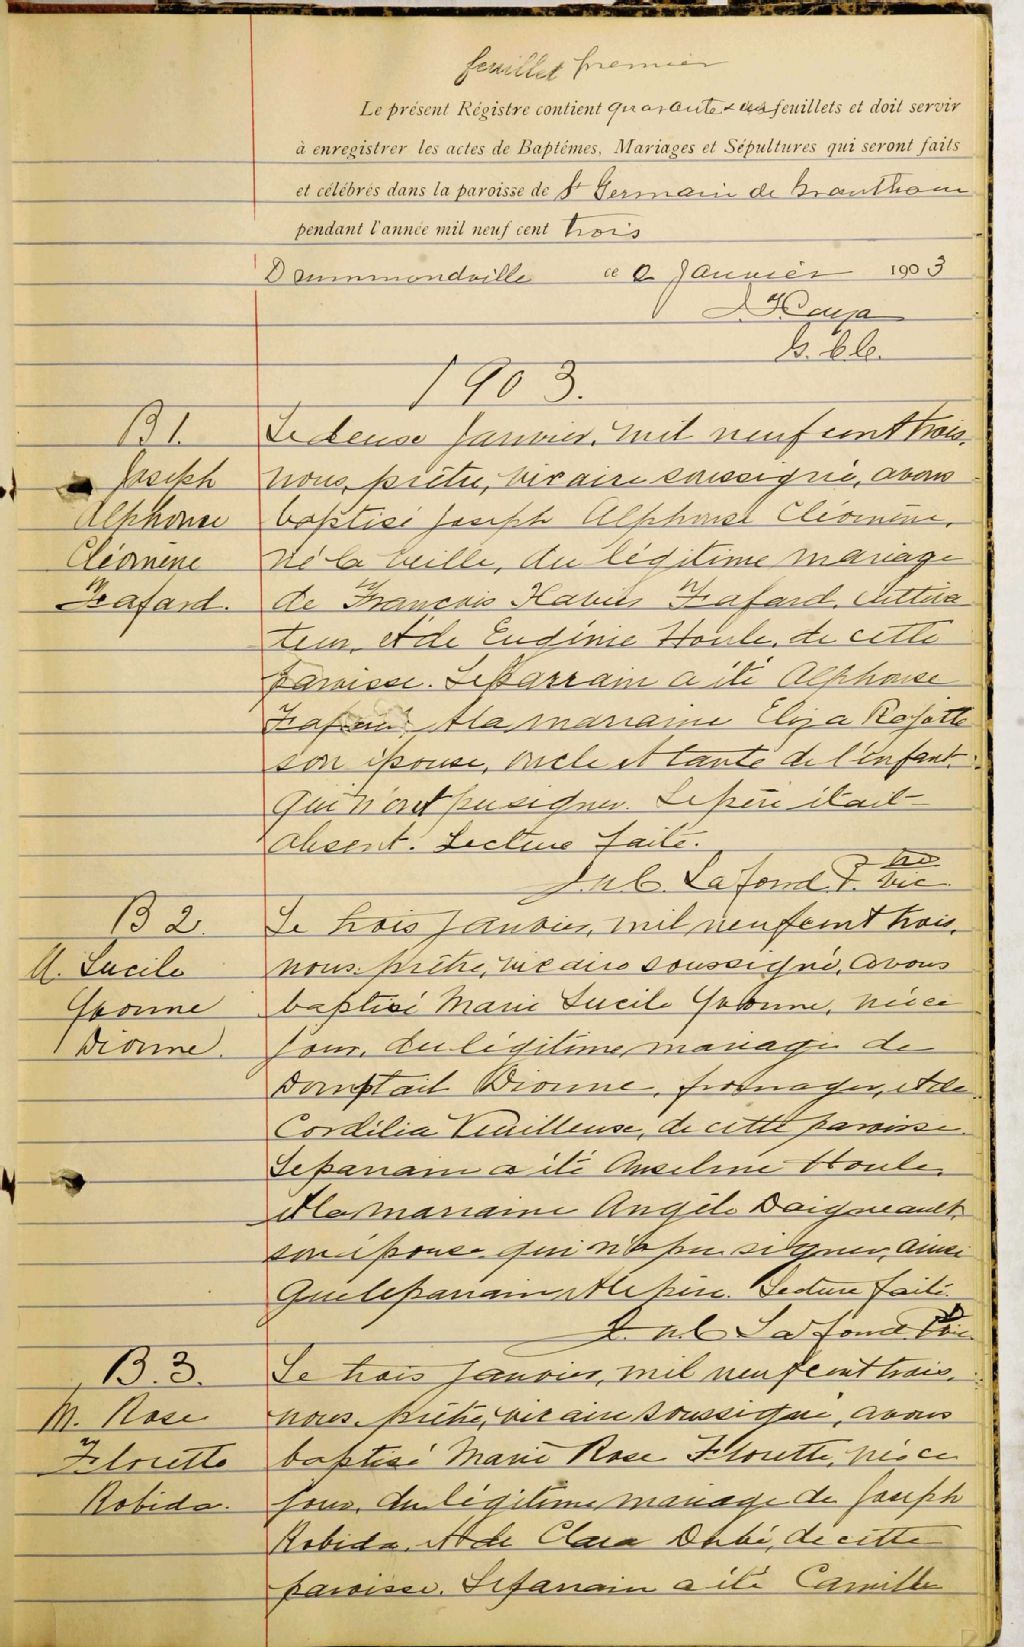 feuillet premier
Le présent Régistre contient quarante feuillets et doit servir
à enregistrer les actes de Baptêmes, Mariages et Sépultures qui seront faits
et célébrés dans la paroisse de St Germain de Grantham
pendant l'année mil neuf cent trois
Drummondville ce 2 Janvier 1903
1903.
B 1.
Joseph
Alphonse
Cléomène
Fafard.
Le deuse Janvier, mil neuf cent trois,
nous, prêtre, vicaire soussigné, avons
baptisé Joseph Alphonse Cléomène,
né la veille, du légitime mariage
de François Xavier Fafard, cultiva
teur, et de Eugénie Houle, de cette
paroisse. Le parrain a été Alphonse
Fafard et la marraine Eliza Rajotte
son épouse, oncle et tante de l'enfant,
qui n'ont pu signer. Le père était
absent. Lecture faite.
Lafond P. vic
B 2.
M. Lucile
Yvonne
Dionne.
Le trois Janvier, mil neuf cent trois,
nous, prêtre, vicaire soussigné, avons
baptisé Marie Lucile Yvonne, née ce
jour, du légitime mariage de
Domptail Dionne, fromager, et de
Cordélia Veilleuse, de cette paroisse.
Le parrain a été Anselme Houle,
et la marraine Angèle Daigneault,
son épouse qui n'a pu signer, ainsi
que le parrain et le père. Lecture faite.
Lafond
B. 3.
M. Rose
Florette
Robida.
Le trois Janvier, mil neuf cent trois,
nous, prêtre, vicaire soussigné, avons
baptisé Marie Rose Florette, née ce
jour, du légitime mariage de Joseph
Robida, et de Clara de cette
paroisse. Le parrain a été Camille